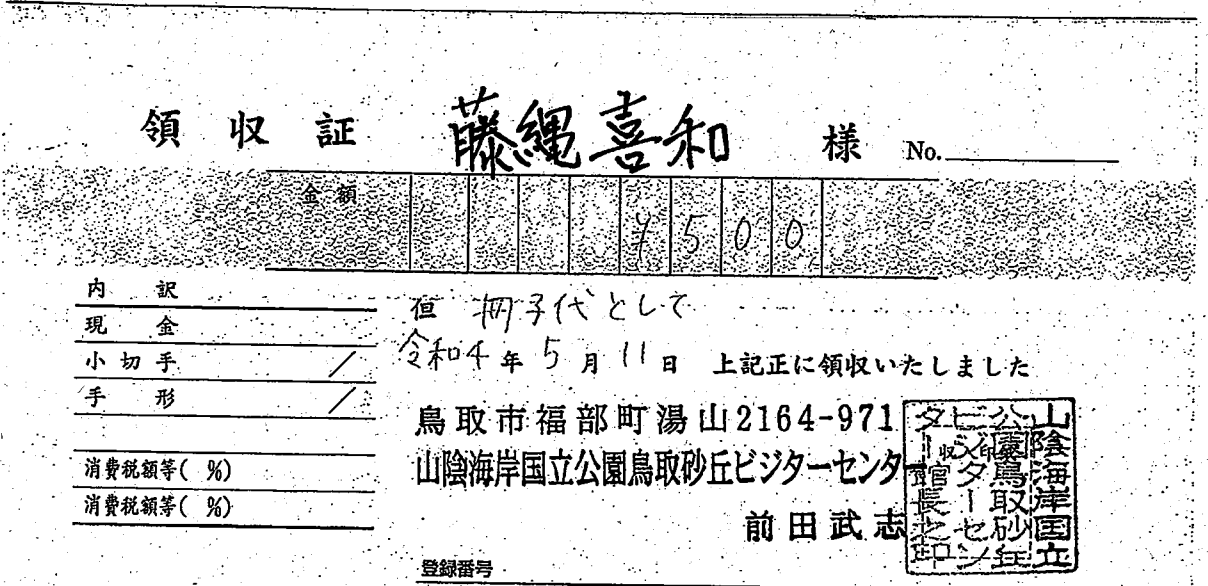 領収証 藤縄喜和 様 No.
金額 ¥500
内訳
現金
小切手 /
手形 /
消費税額等( %)
消費税額等( %)
但 冊子代として
令和4年5月11日 上記正に領収いたしました
鳥取市福部町湯山2164-971
山陰海岸国立公園鳥取砂丘ビジターセンター
前田武志
山陰海岸国立
公園鳥取砂丘
ビジターセン
ター館長之印
登録番号